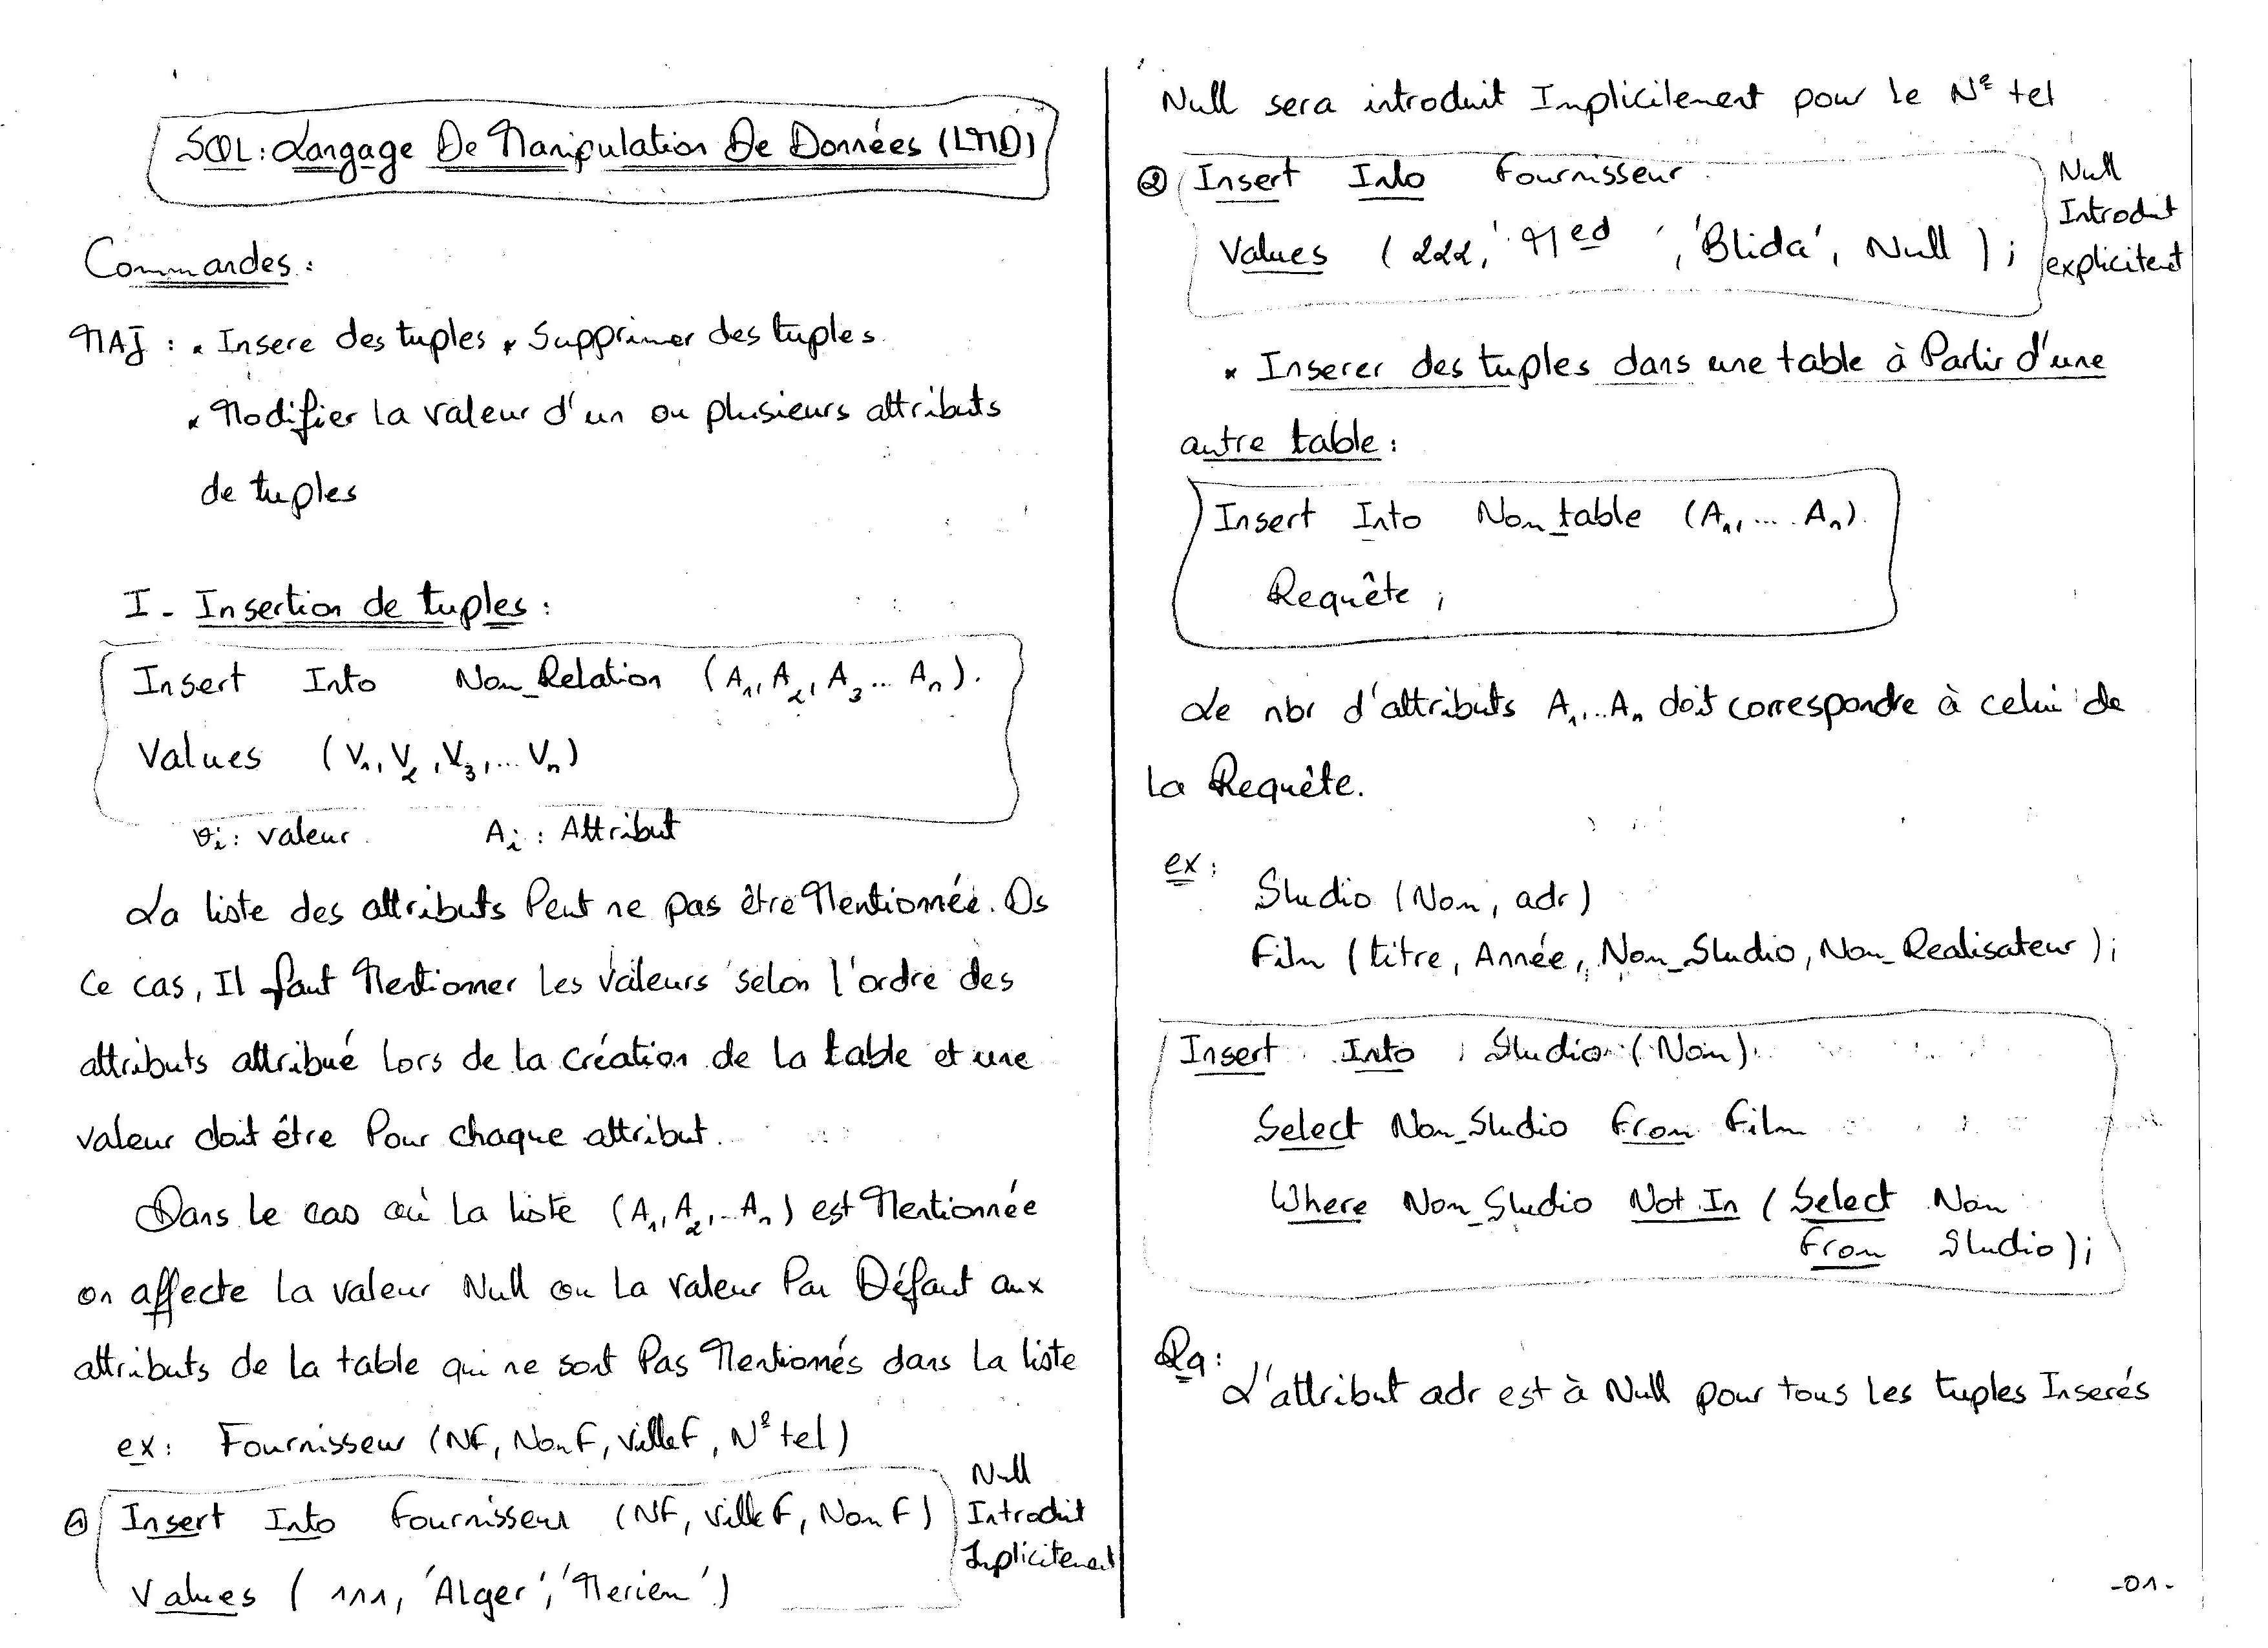 SQL: Langage De Manipulation De Données (LMD)
Commandes :
MAJ : * Insere des tuples * Supprimer des tuples
* Modifier la valeur d'un ou plusieurs attributs
de tuples
I - Insertion de tuples :
Insert Into Nom_Relation (A1, A2, A3... An).
Values (V1, V2, V3,... Vn)
vi : valeur Ai : Attribut
La liste des attributs Peut ne pas être Mentionnée. Ds
Ce cas, Il faut Mentionner les valeurs selon l'ordre des
attributs attribué lors de la création de la table et une
valeur doit être Pour chaque attribut.
Dans le cas où la liste (A1, A2,.. An) est Mentionnée
on affecte la valeur Null ou la valeur Par Défaut aux
attributs de la table qui ne sont Pas Mentionnés dans la liste
ex : Fournisseur (NF, NomF, VilleF, N° tel)
① Insert Into Fournisseur (NF, VilleF, NomF)
Values ( 111, 'Alger', 'Meriem')
Null
Introduit
Implicitement
Null sera introduit Implicitement pour le N° tel
② Insert Into Fournisseur
Values ( 222, 'Med', 'Blida', Null ) ;
Null
Introduit
explicitent
* Inserer des tuples dans une table à Partir d'une
autre table :
Insert Into Nom_table (A1, ... An).
Requête ;
Le nbr d'attributs A1,...An doit correspondre à celui de
la Requête.
ex :
Studio (Nom, adr)
Film (titre, Année, Nom_Studio, Nom_Realisateur) ;
Insert Into Studio (Nom)
Select Nom_Studio From Film
Where Nom_Studio Not In ( Select Nom
From Studio) ;
Rq :
L'attribut adr est à Null pour tous les tuples Inserés
-01-